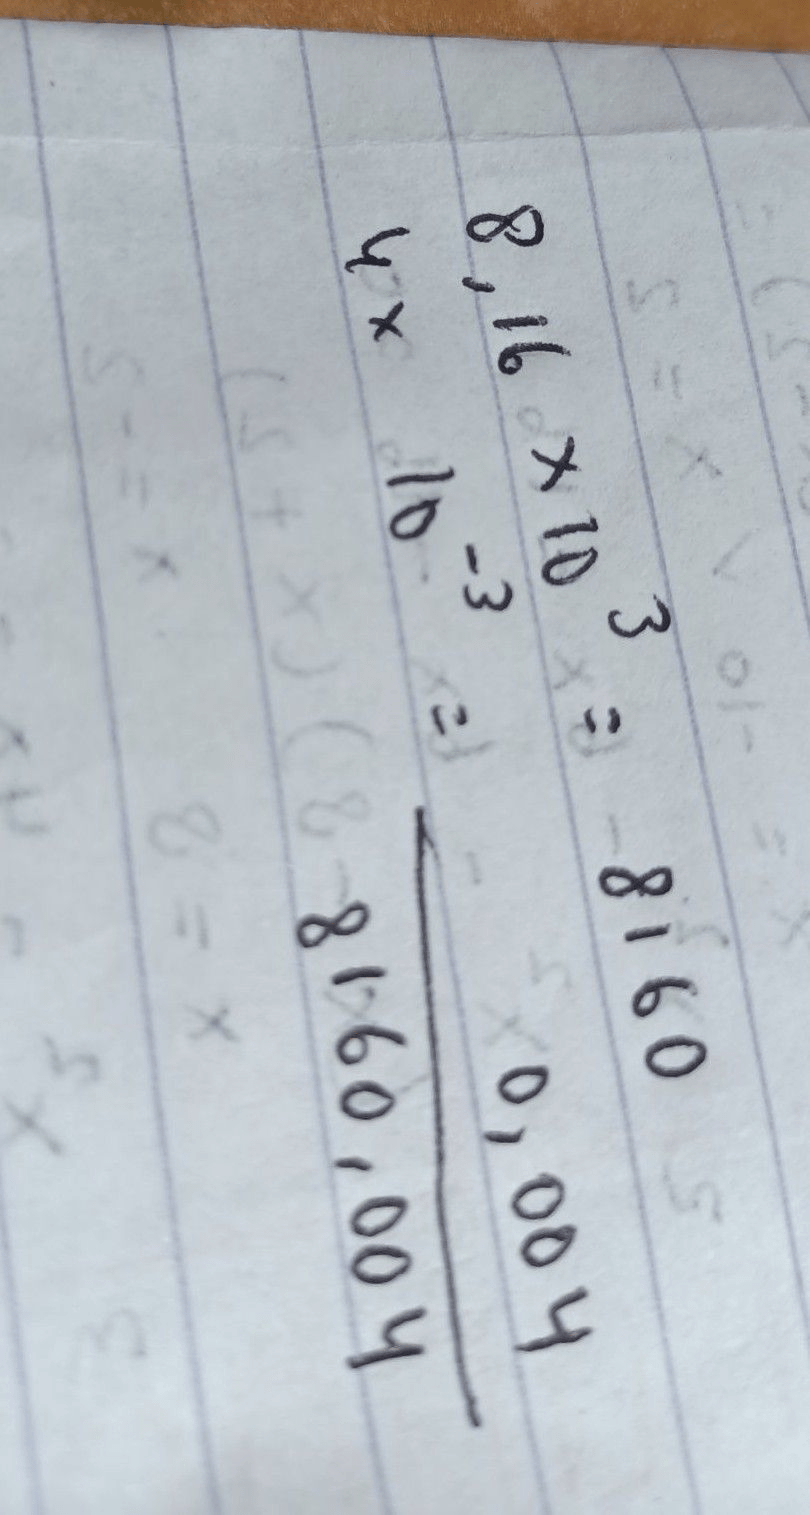 8,16 x 10³ = 8160
4x 10⁻³ = 0,004
8160,004